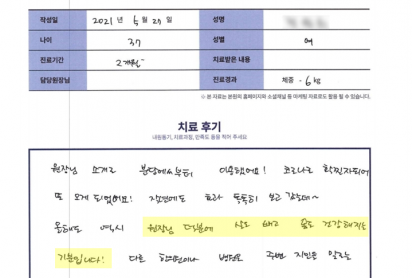 작성일 2021년 6월 29일 성명
나이 37 성별 여
진료기간 2개월 치료받은 내용
담당원장님 진료경과 체중 -6kg
※ 본 자료는 본원의 홈페이지와 소셜채널 등 마케팅 자료로도 활용 될 수 있습니다.
치료 후기
내원동기, 치료과정, 만족도 등을 적어 주세요
원장님 소개로 분당에서부터 이용했어요! 코로나로 확찐자되어
또 오게 되었어요! 작년에도 효과 톡톡히 보고 갔는데~
올해도 역시 원장님 덕분에 살도 빼고 몸도 건강해지는
기분입니다! 다른 한의원이나 병원도 주변 지인은 많지는